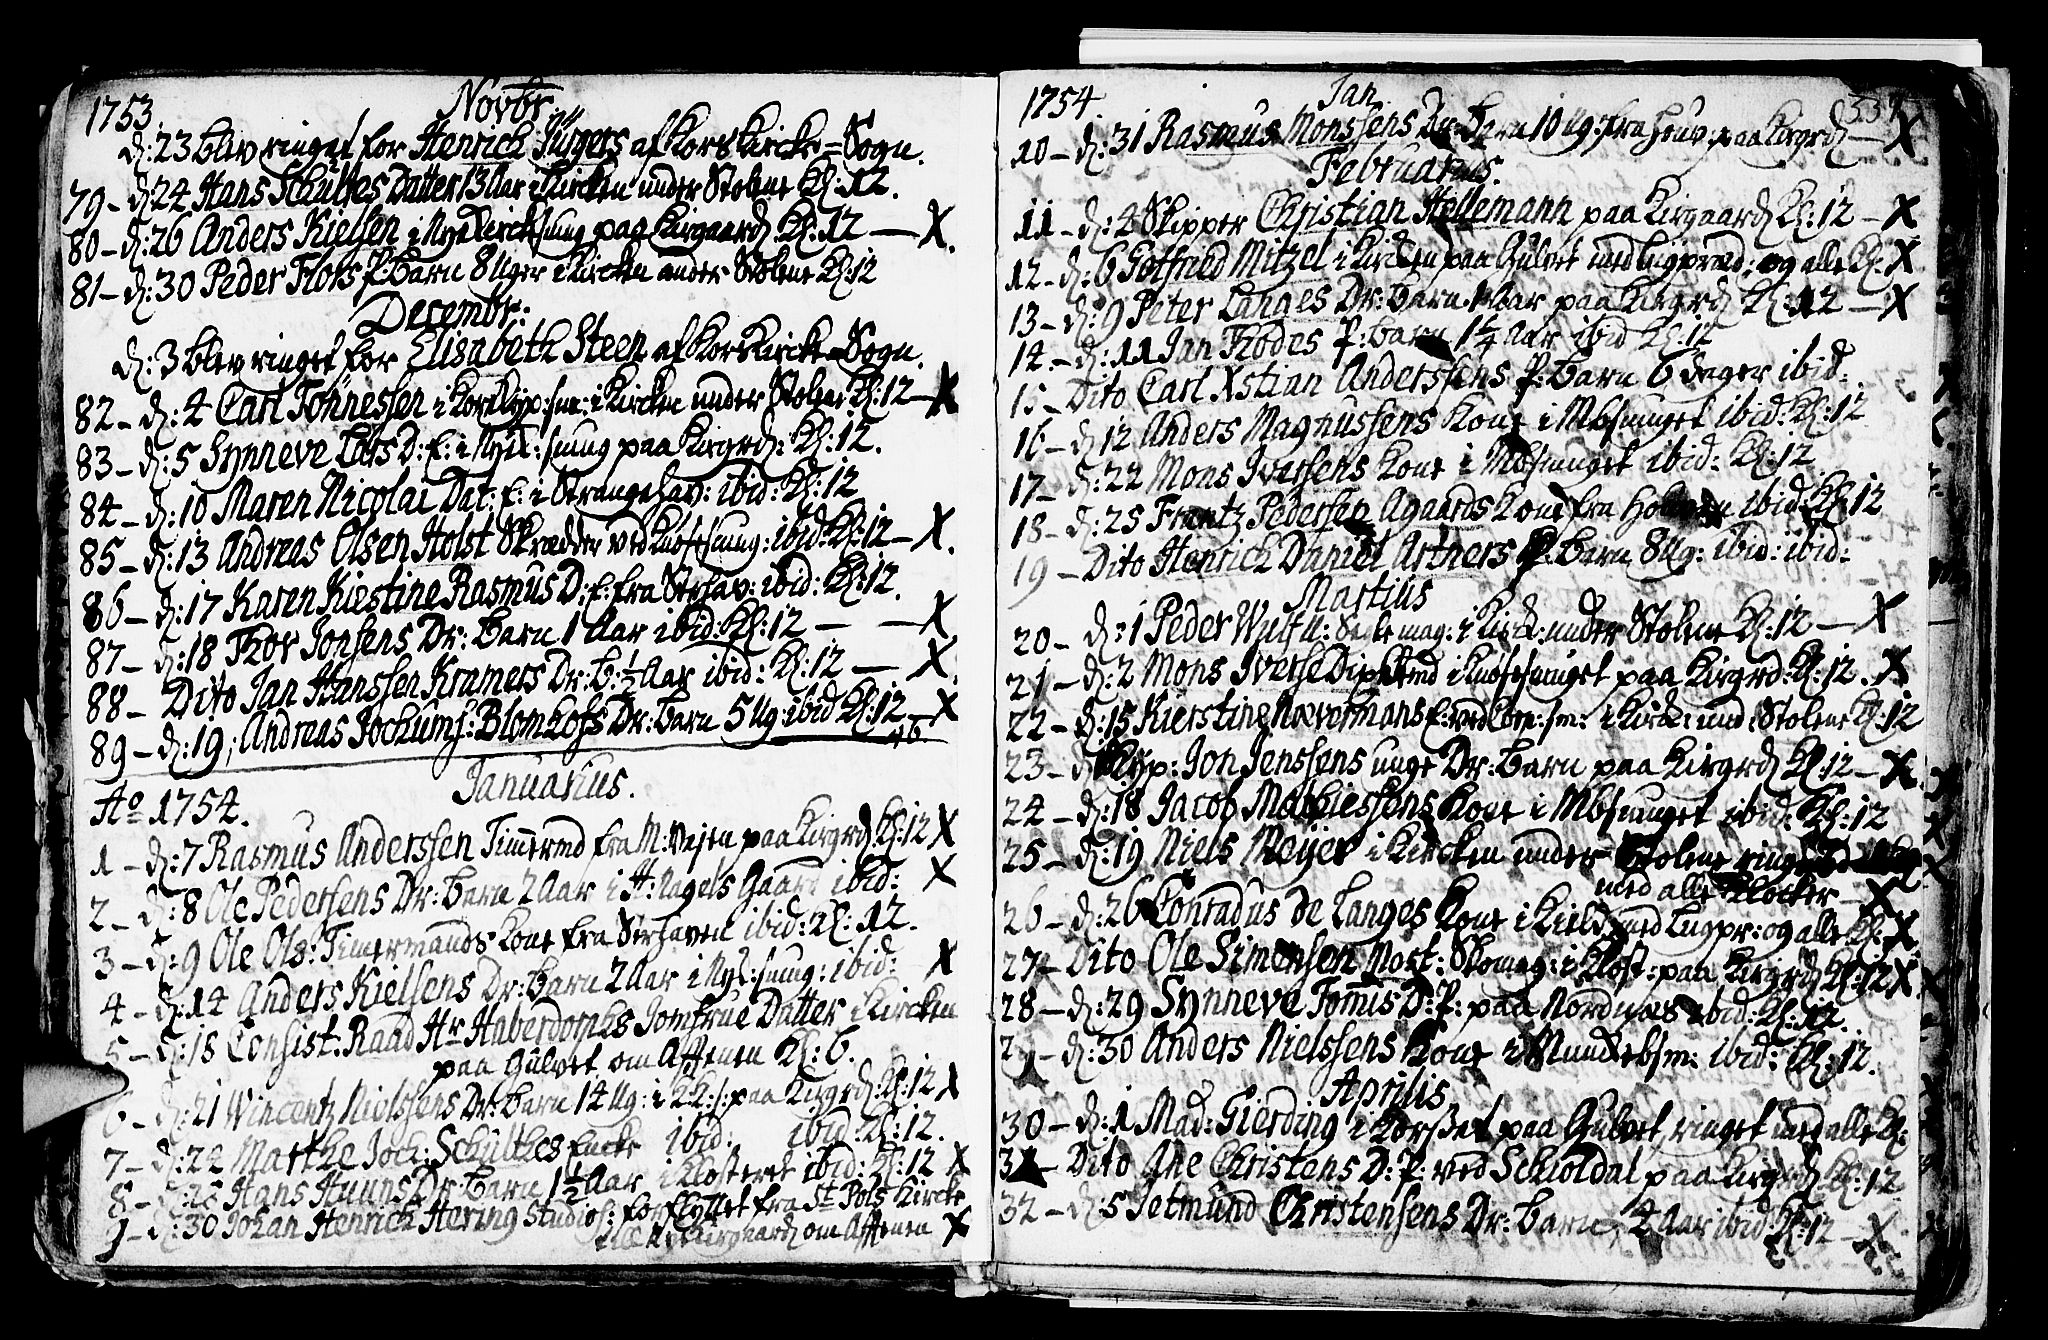 1753. Novbr.
d: 23 blev ringet for Henrich Jürgers af Kors Kircke=Sogn.
79 – d: 24 Hans Schultes Datter 13 Aar i Kircken under Stolene Kl: 12.
80 – d: 26 Anders Kielsen i Nye Kircksmug paa Kirgaard Kl: 12 — X.
81 – d: 30 Peder Flors P: Barn 8 Uger i Kircken under Stolene Kl: 12
Decembr:
d: 3 blev ringet for Elisabeth Steen af Kors Kircke=Sogn.
82 – d: 4 Carl Tönnessen i : i Kircken under Stolene Kl: 12 – X
83 – d: 5 Synneve Lars D: E: i Nyk: smug paa Kirgrd: Kl: 12.
84 – d: 10 Maren Nicolai Dat: E: i Strangehav: ibid: Kl: 12
85 – d: 13 Andreas Olsen Holst Skrædder ved smug: ibid: Kl: 12 – X.
86 – d: 17 Karen Kiestine Rasmus D: E: fra Strhav: ibid: Kl: 12.
87 – d: 18 Thor Jonsens Dr: Barn 1 Aar ibid: Kl: 12 — – X
88 – Dito Jan Hanssen Kramers Dr: B: ½ Aar ibid: Kl: 12 — X.
89 – d: 19, Andreas Jochums: Blomhofs Dr: Barn 5 Ug: ibid Kl: 12 – X
Januarius.
Ao 1754.
1 – d: 7 Rasmus Anderssen Timermd fra M: Vejen paa Kirgrd Kl: 12 X
2 – d: 8 Ole Pedersens Dr: Barn 2 Aar i H: Nagels Gaard ibid: X
3 – d: 9 Ole Ols: Timermands Kone fra Strhaven ibid: Kl: 12.
4 – d: 14 Anders Kielsens Dr: Barn 2 Aar i Nyk: smug: ibid: X
5 – d: 18 Consist: Raad Hr Haberdombs Jomfrue Datter i Kircken
paa Gulvet om Afftenen Kl: 6.
6 – d: 21 Wincentz Nielssens Dr: Barn 14 Ug: i : paa Kirgrd: Kl: 12 X
7 – d: 22 Marthe Joch: Schultes Encke ibid: ibid: Kl: 12.
8 – d: 28 Hans Huuns Dr: Barn 1½ Aar i Klosteret ibid: Kl: 12 X
9 – d: 30 Johan Henrich Hering Studios: forflyttet fra St Pols Kircke
Kirgaard om Afftenen X
1754. Jan.
10 – d: 31 Rasmus Monssens Dr: Barn 10 Ug: fra paa Kirgrd — X
Februarius.
11 – d: 4 Skipper Christian Hellemann paa Kirgaard Kl: 12 – X
12 – d: 6 Gotfried Mitzel i Kircken paa Gulvet med Ligpræd: og alle Kl: X
13 – d: 9 Peter Langes Dr: Barn 1 Aar paa Kirgrd Kl: 12 — X
14 – d: 11 Jan Thodes P: Barn 1¼ Aar ibid Kl: 12
15 – Dito Carl Xstian Anderssens P: Barn 6 Dager ibid:
16 – d 12 Anders Magnussens Kone i Mbsmuget ibid: Kl: 12
17 – d: 22 Mons Iversens Kone i Mbsmuget ibid: Kl: 12
18 – d: 25 Frantz Pedersen Agaards Kone fra ibid: Kl: 12
19 – Dito Henrich Daniel Artners P: Barn 8 Ug: ibid: ibid:
Martius
20 – d: 1 Peder Wulf mag: i Kirck: under Stolene Kl: 12 — X
21 – d: 2 Mons Iverse i paa Kirgrd: Kl: 12. X
22 – d: 15 Kierstine E: ved : i Kirck: und: Stolene Kl: 12
23 – d Jon Jenssens unge Dr: Barn paa Kirgrd Kl: 12 – X
24 – d: 18 Jacob Mathiessens Kone i Mbsmuget ibid: Kl: 12
25 – d: 19 Niels Meyer i Kircken under Stolene ringet
med alle Klocker – X
26 – d: 26 Conradus de Langes Kone i Kirck med Ligpr: og alle Kl: X
27 – Dito Ole Simensen Most: Skomag: i Klost: paa Kirgrd Kl: 12 X
28 – d: 29 Synneve Tomis D: P: paa Nordnæs ibid: Kl: 12.
29 – d: 30 Anders Nielssens Kone i ibid: Kl: 12.
Aprilis
30 – d: 1 Mad: Gierding i paa Gulvet ringet med alle Kl:
31 – Dito Ane Christens D: P: ved Schioldal paa Kirgrd Kl: 12
32 – d: 5 Jetmund Christensens Dr: Barn, 4 Aar ibid Kl: 12 – X